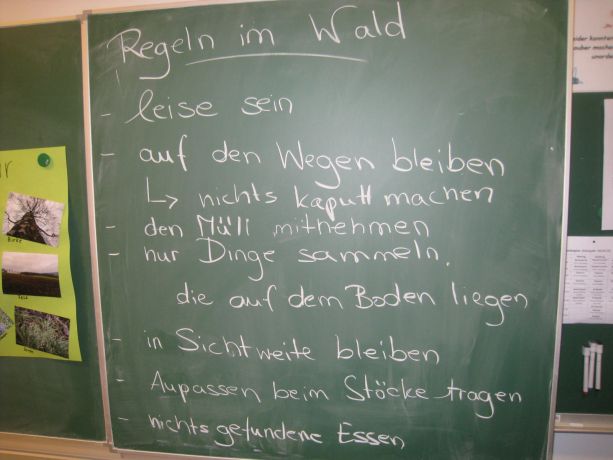 Regeln im Wald
- leise sein
- auf den Wegen bleiben
↳ nichts kaputt machen
- den Müll mitnehmen
- nur Dinge sammeln,
die auf dem Boden liegen
- in Sichtweite bleiben
- Aupassen beim Stöcke tragen
- nichts gefundene Essen